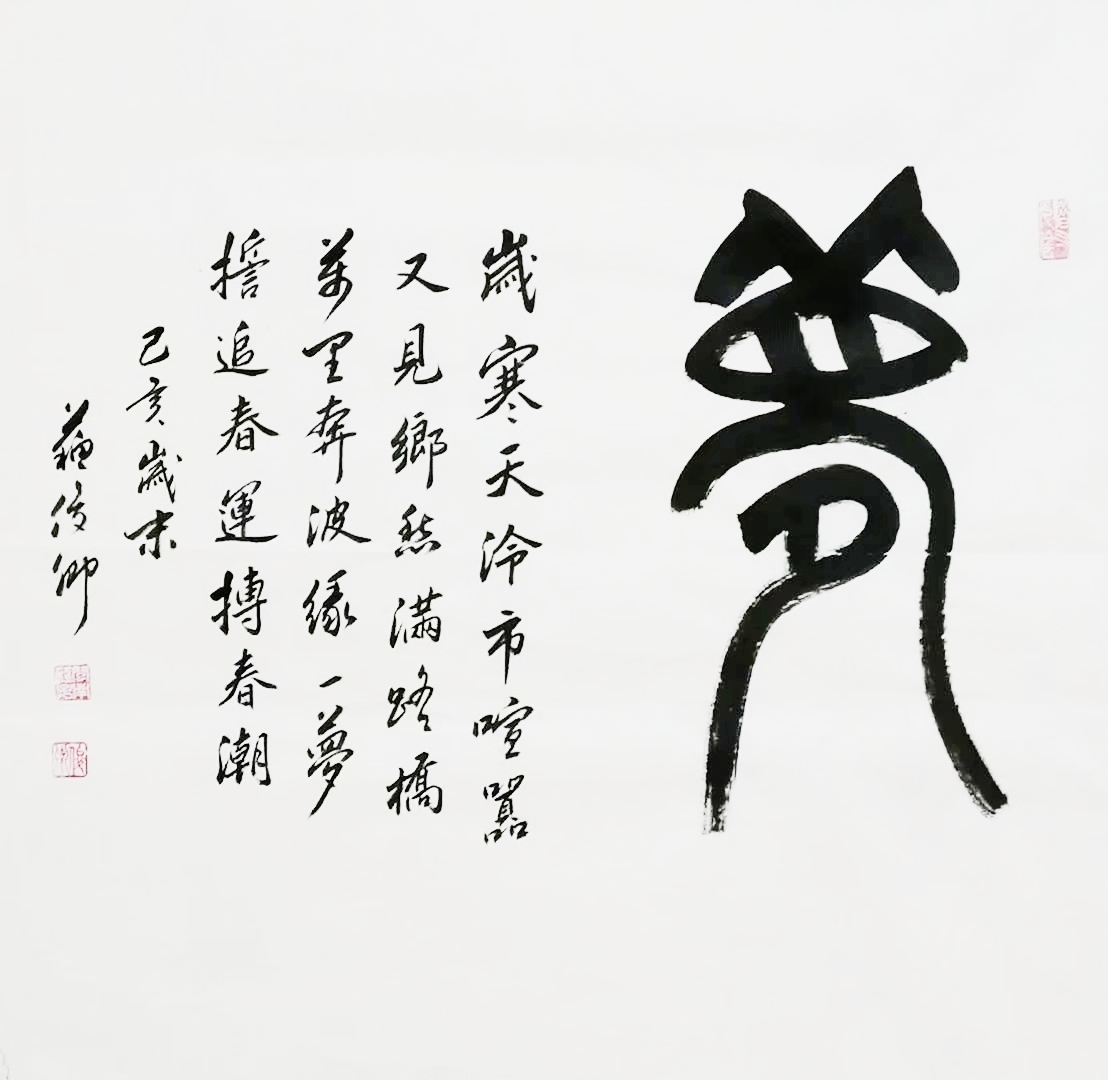 夢
歲寒天冷市喧囂
又見鄉愁滿路橋
萬里奔波緣一夢
擔追春運搏春潮
己亥歲末
蘇俊卿